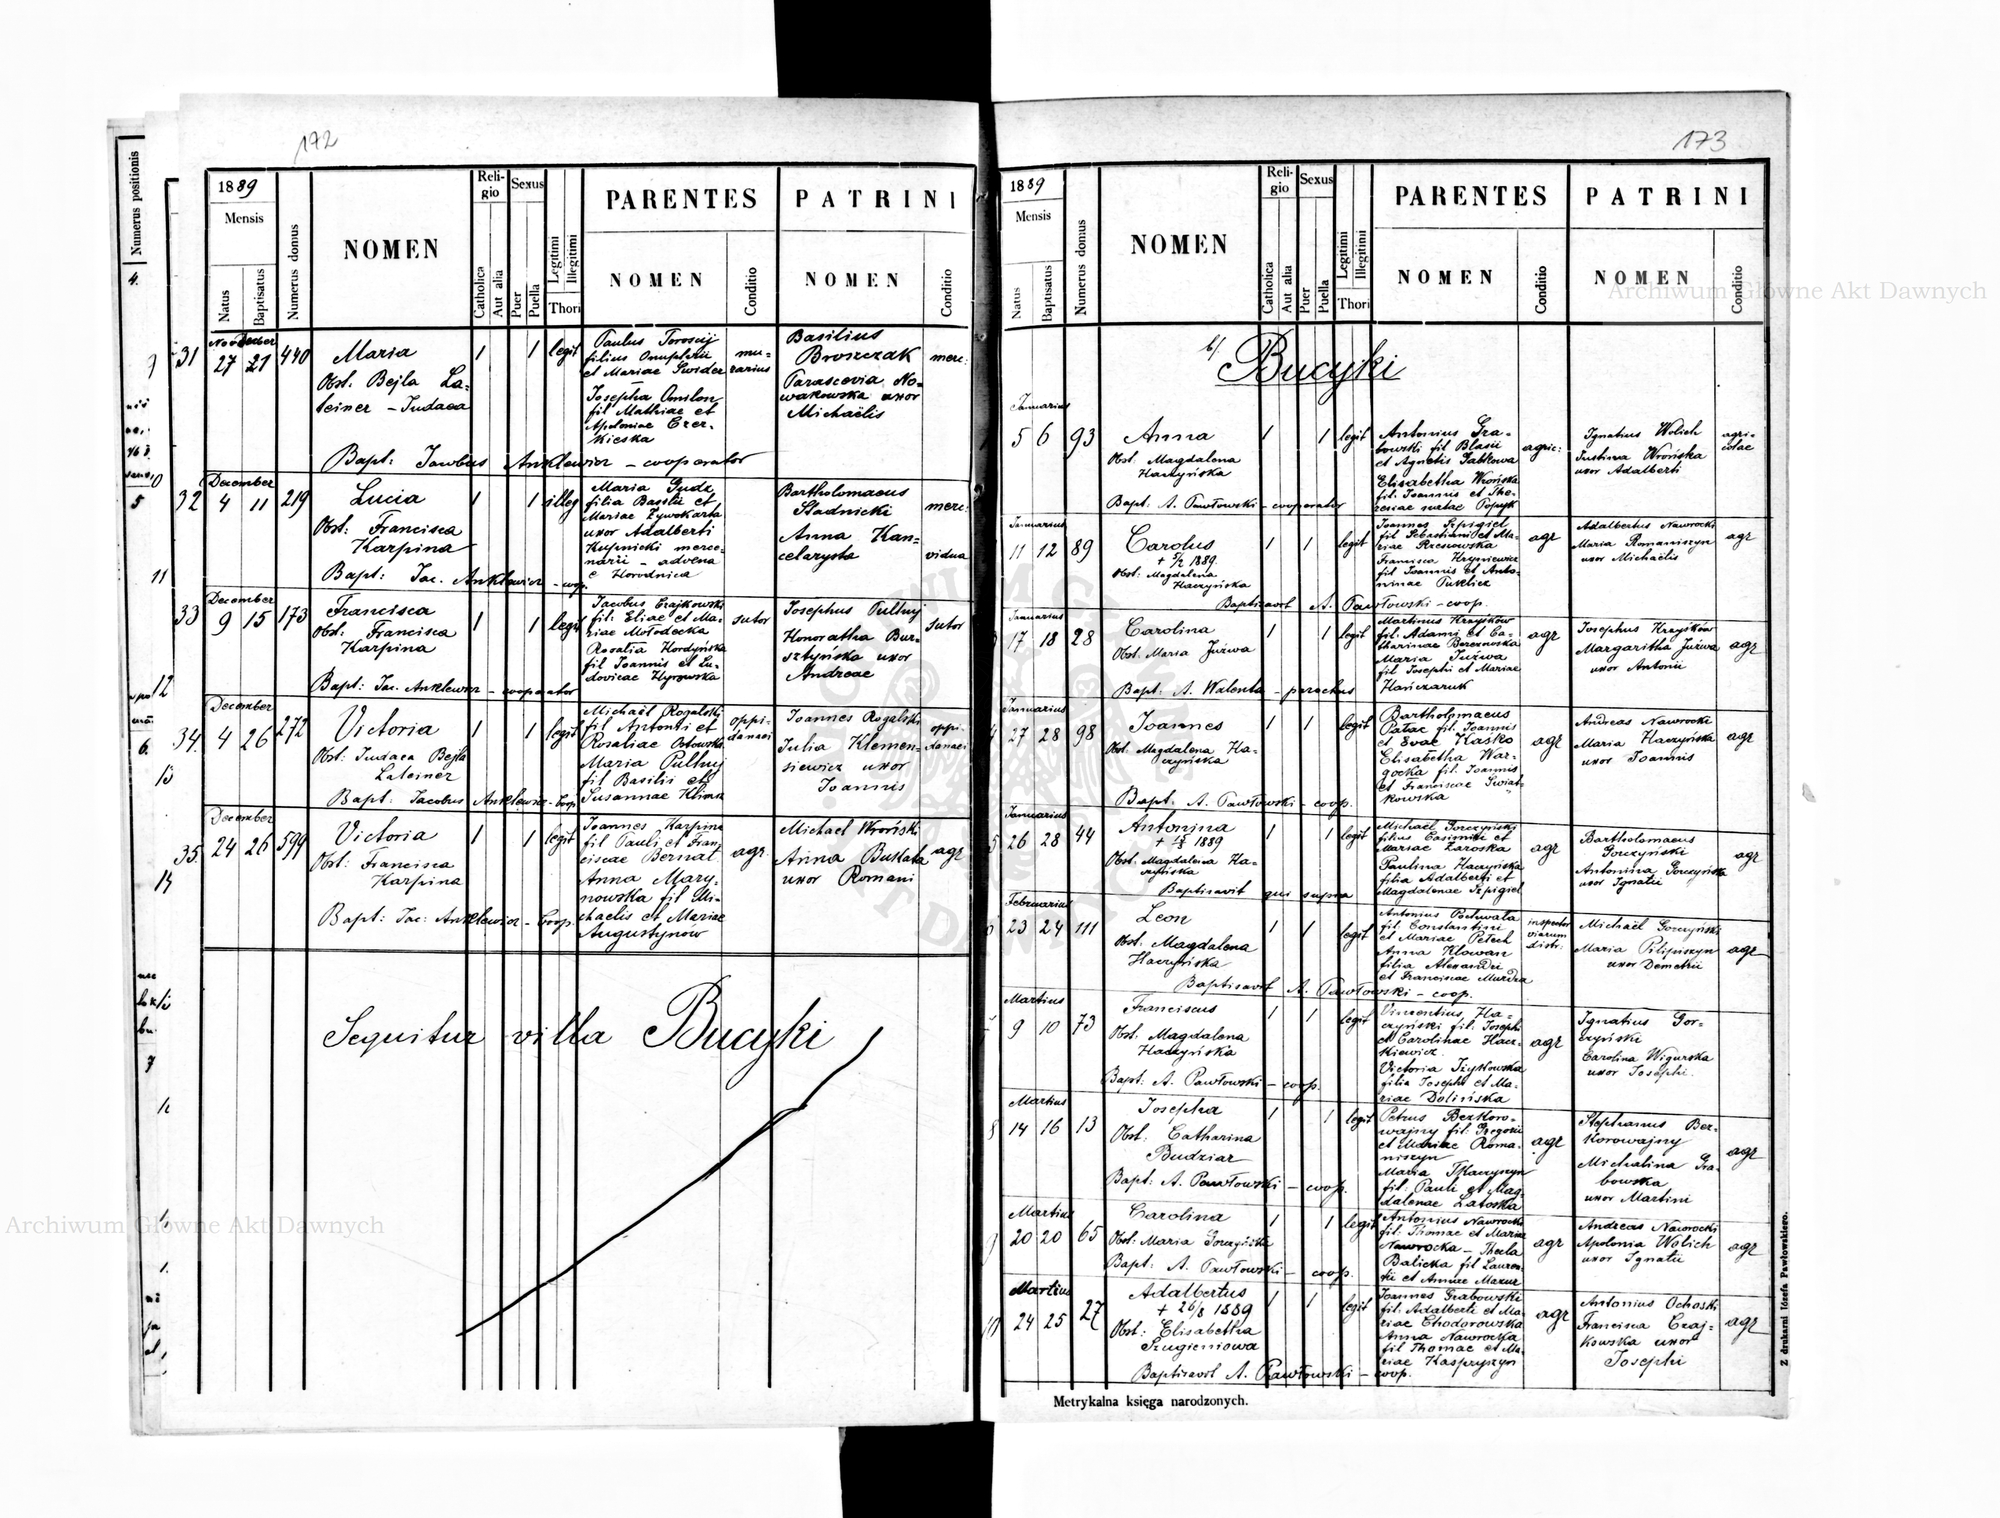 172
1889
Mensis
Natus
Baptisatus
Numerus domus
NOMEN
Religio
Catholica
Aut alia
Sexus
Puer
Puella
Legitimi
Illegitimi
Thori
PARENTES
NOMEN
Conditio
PATRINI
NOMEN
Conditio
Numerus positionis
31
November December
27 21 440
Maria
Obst. Bejla La-
teiner - Judaea
1 1 legit
filius Onuphrii
et Mariae Swider
Josepha Omilon
fil Mathiae et
Apoloniae Czer-
kieska
mu-
rarius
Basilius
Broszczak
Parascevia No-
wakowska uxor
Michaëlis
merc:
Bapt: Jacobus Anklewicz - cooperator
32
December
4 11 219
Lucia
Obst: Francisca
Karpina
1 1 illeg
Maria Gudz
filia Basilii et
Mariae Zywokarta
uxor Adalberti
Kupnicki merce-
narii - advena
e Horodnica
Bartholomaeus
Stadnicki
merc:
Anna Kan-
celarysta
vidua
Bapt: Jac. Anklewicz - coop.
33
December
9 15 173
Francisca
Obst: Francisca
Karpina
1 1 legit
Jacobus Czajkowski
fil: Eliae et Ma-
riae Mołodecka
Rosalia Hordyńska
fil Joannis et Lu-
dovicae Hyrowska
sutor
Josephus Pultuj
Honoratha Bur-
sztyńska uxor
Andreae
sutor
Bapt: Jac. Anklewicz - cooperator
34
December
4 26 272
Victoria
Obst: Judaea Bejla
Lateiner
1 1 legit
Michaël Rogalski
fil Antonii et
Maria Pultuj
fil Basilii et
Susannae Klimek
oppi-
danaei
Joannes Rogalski
Julia Klemen-
siewicz uxor
Joannis
oppi-
danaei
Bapt: Jacobus Anklewicz - Coop
35
December
24 26 599
Victoria
Obst: Francisca
Karpina
1 1 legit
Joannes Karpina
fil Pauli et Fran-
ciscae Bernat
Anna Mary-
nowska fil Mi-
chaelis et Mariae
Augustynów
agr.
Michael Wroński
Anna Bukata
uxor Romani
agr
Bapt: Jac: Anklewicz - Coop.
Sequitur villa Bucyki
173
1889
Mensis
Natus
Baptisatus
Numerus domus
NOMEN
Religio
Catholica
Aut alia
Sexus
Puer
Puella
Legitimi
Illegitimi
Thori
PARENTES
NOMEN
Conditio
PATRINI
NOMEN
Conditio
b/
Bucyki
Januarius
5 6 93
Anna
Obst. Magdalena
Haczyńska
1 1 legit
Antonius Gra-
bowski fil Blasii
et Agnetis Jabkowa
Elisabetha Wrońska
fil. Joannis et The-
resiae natae Popyk
agric:
Ignatius Wolich
Justina Wrońska
uxor Adalberti
agri-
colae
Bapt: A. Pawłowski - cooperator
Januarius
11 12 89
Carolus
+ 5/2 1889.
Obst: Magdalena
Haczyńska
1 1 legit
Joannes Szpigiel
fil Sebastiani et Ma-
riae Rzesnowska
Francisca Hryniewicz
fil Joannis et Anto-
ninae Puklicz
agr
Adalbertus Nawrocki
Maria Romaniszyn
uxor Michaëlis
agr
Baptisavit A. Pawłowski - coop.
Januarius
17 18 28
Carolina
Obst: Maria Juźwa
1 1 legit
Martinus Krzyśków
fil: Adami et Ca-
tharinae Berezowska
Maria Juźwa
fil Josephi et Mariae
Hanczaruk
agr
Josephus Krzyśków
Margaritha Juźwa
uxor Antonii
agr
Bapt: A. Walenta - parochus
Januarius
27 28 98
Joannes
Obst: Magdalena Ha-
czyńska
1 1 legit
Bartholomaeus
Pałac fil: Joannis
et Evae Kaśko
Elisabetha War-
gocka fil: Joannis
et Franciscae Świąt-
kowska
agr
Andreas Nawrocki
Maria Haczyńska
uxor Joannis
agr
Bapt: A. Pawłowski - coop.
Januarius
26 28 44
Antonina
Obst: Magdalena Ha-
czyńska
1 1 legit
Michaël Gorczyński
filius Casimiri et
Mariae Zaroska
Paulina Haczyńska
filia Adalberti et
Magdalenae Szpigiel
agr
Bartholomaeus
Gorczyński
Antonina Gorczyńska
uxor Ignatii
agr
Baptisavit qui supra
Februarius
23 24 111
Leon
Obst: Magdalena
Haczyńska
1 1 legit
Antonius Pochwała
fil Constantini
et Mariae Petech
Anna Klowan
filia Alexandri
et Franciscae Murdza
inspector
viarum
distr:
Michaël Gorczyński
Maria Pilipiszyn
uxor Demetrii
agr
Baptisavit A. Pawłowski - coop.
Martius
9 10 73
Franciscus
Obst: Magdalena
Haczyńska
1 1 legit
Vincentius Ha-
czyński fil: Josephi
et Carolinae Hacz-
kiewicz
Victoria Izykowska
filia Josephi et Ma-
riae Dolińska
agr
Ignatius Gor-
czyński
Carolina Wigurska
uxor Josephi.
Bapt: A. Pawłowski - coop.
8
Martius
14 16 13
Josepha
Obst: Catharina
Budziar
1 1 legit
Petrus Bezkoro-
wajny fil: Gregorii
et Mariae Roma-
niszyn
Maria Tkaczyszyn
fil: Pauli et Mag-
dalenae Latoska
agr
Stephanus Bez-
korowajny
Michalina Gra-
bowska
uxor Martini
agr
Bapt: A. Pawłowski - coop.
9
Martius
20 20 65
Carolina
Obst: Maria Gorczyńska
1 1 legit
Antonius Nawrocki
fil: Thomae et Mariae
Nawrocka - Thecla
Balicka fil Lauren-
tii et Annae Mazur
agr
Andreas Nawrocki
Apolonia Wolich
uxor Ignatii
agr
Bapt: A. Pawłowski - coop.
10
Martius
24 25 27
Adalbertus
+ 26/8 1889
Obst: Elisabetha
Szugieniowa
1 1 legit
Joannes Grabowski
fil: Adalberti et Ma-
riae Chodorowska
Anna Nawrocka
fil Thomae et Ma-
riae Kasprzyszyn
agr
Antonius Ochoski
Francisca Czaj-
kowska uxor
Josephi
agr
Baptisavit A. Pawłowski - coop.
Metrykalna księga narodzonych.
Z drukarni Józefa Pawłowskiego.
Archiwum Główne Akt Dawnych
Archiwum Główne Akt Dawnych